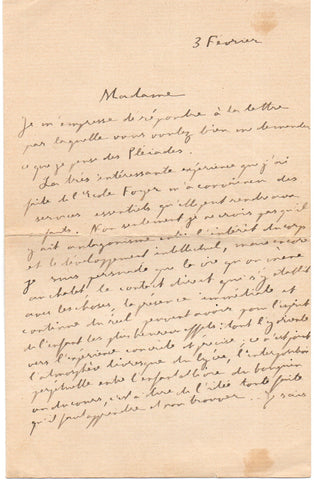 3 Février
Madame
Je m'empresse de répondre à la lettre
par laquelle vous voulez bien me demander
ce que je pense des Pléiades.
La très intéressante expérience que j'ai
faite de l'Ecole Foyer m'a convaincu des
services essentiels qu'elle peut rendre aux
enfants. Non seulement je ne crois pas qu'il
y ait antagonisme entre l'intérêt du corps
et le développement intellectuel, mais encore
je suis persuadé que la vie qu'on mène
au chalet, le contact direct qui s'y établit
avec les choses, la présence immédiate et
continue du réel peuvent avoir pour l'esprit
de l'enfant les plus heureux effets : tout l'y oriente
vers l'expérience concrète et précise ; ce n'est point
l'atmosphère livresque du lycée, l'interposition
perpétuelle entre l'enfant et la vie du bouquin
ou du cours, c'est-à-dire de l'idée toute faite
qu'il faut apprendre et non trouver. Je sais